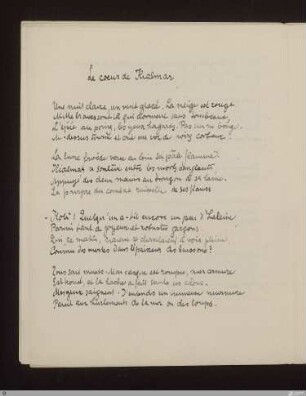 Le coeur de Hialmar
Une nuit claire, un vent glacé. La neige est rouge
Mille braves sont là qui dorment sans tombeaux,
L'épée au poing, les yeux hagards. Pas un ne bouge.
Au-dessus tourne et crie un vol de noirs corbeaux
La lune froide verse au loin sa pâle flamme.
Hialmar se soulève entre les morts sanglants
Appuyé des deux mains au tronçon de sa lame.
La pourpre du combat ruisselle de ses flancs
- Holà! Quelqu'un a-t-il encore un peu d'haleine
Parmi tant de joyeux et robustes garçons
Qui, ce matin, riaient et chantaient à voix pleine
Comme des merles dans l'épaisseur des buissons?
Tous sont muets. Mon casque est rompu, mon armure
Est troué, et la hache a fait sauter ses clous.
Mes yeux saignent. J'entends un immense murmure
Pareil aux hurlements de la mer ou des loups.